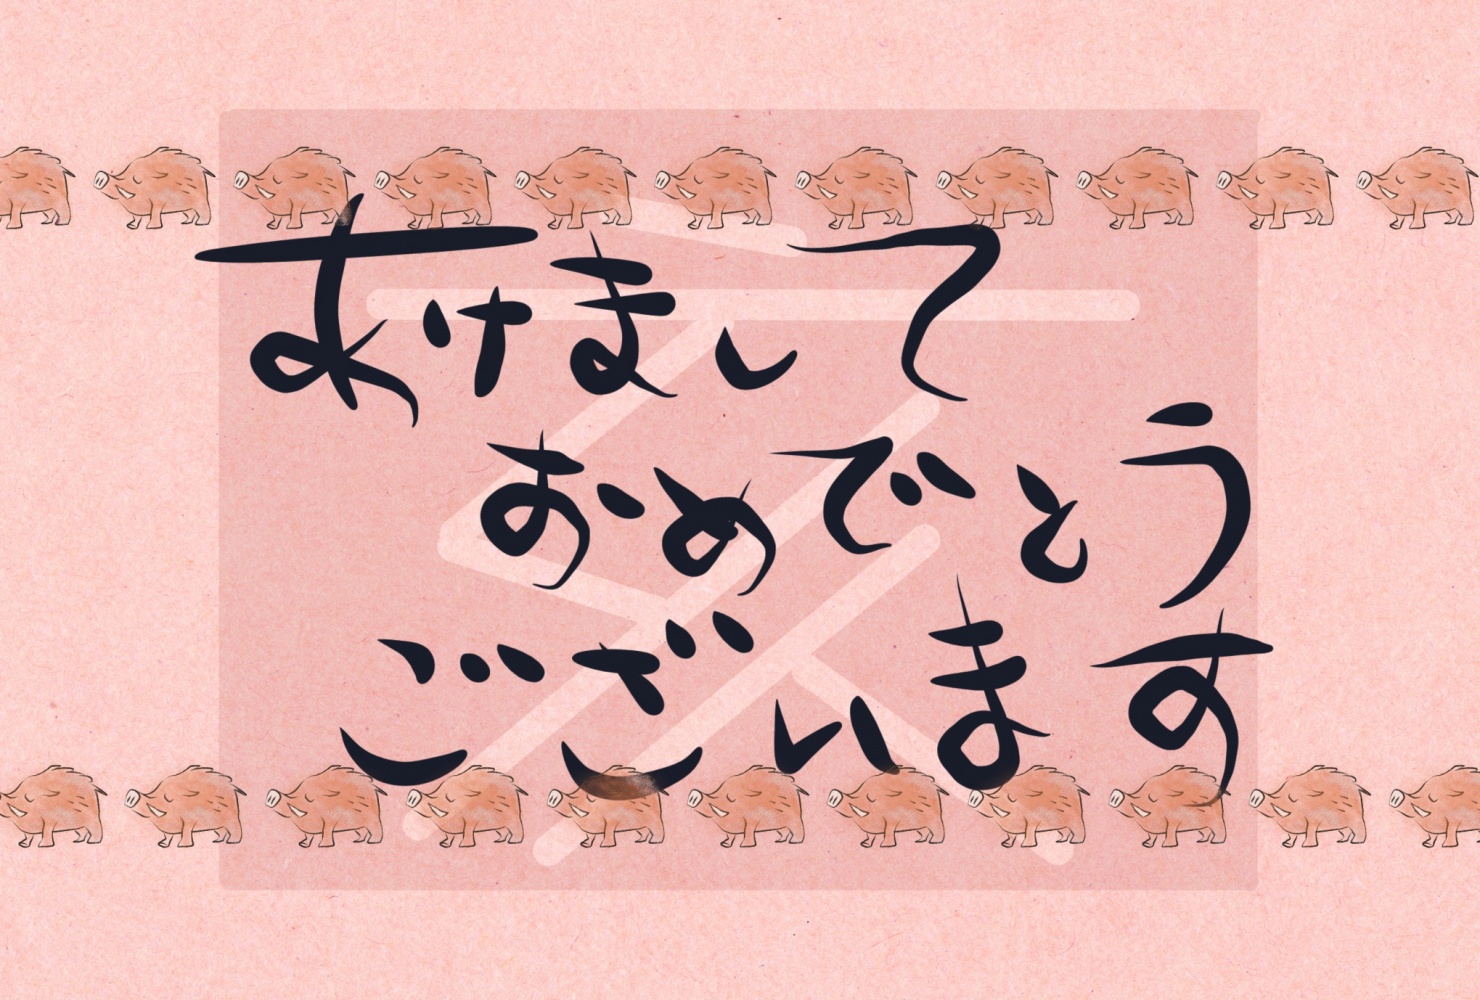 あけまして
おめでとう
ございます
亥